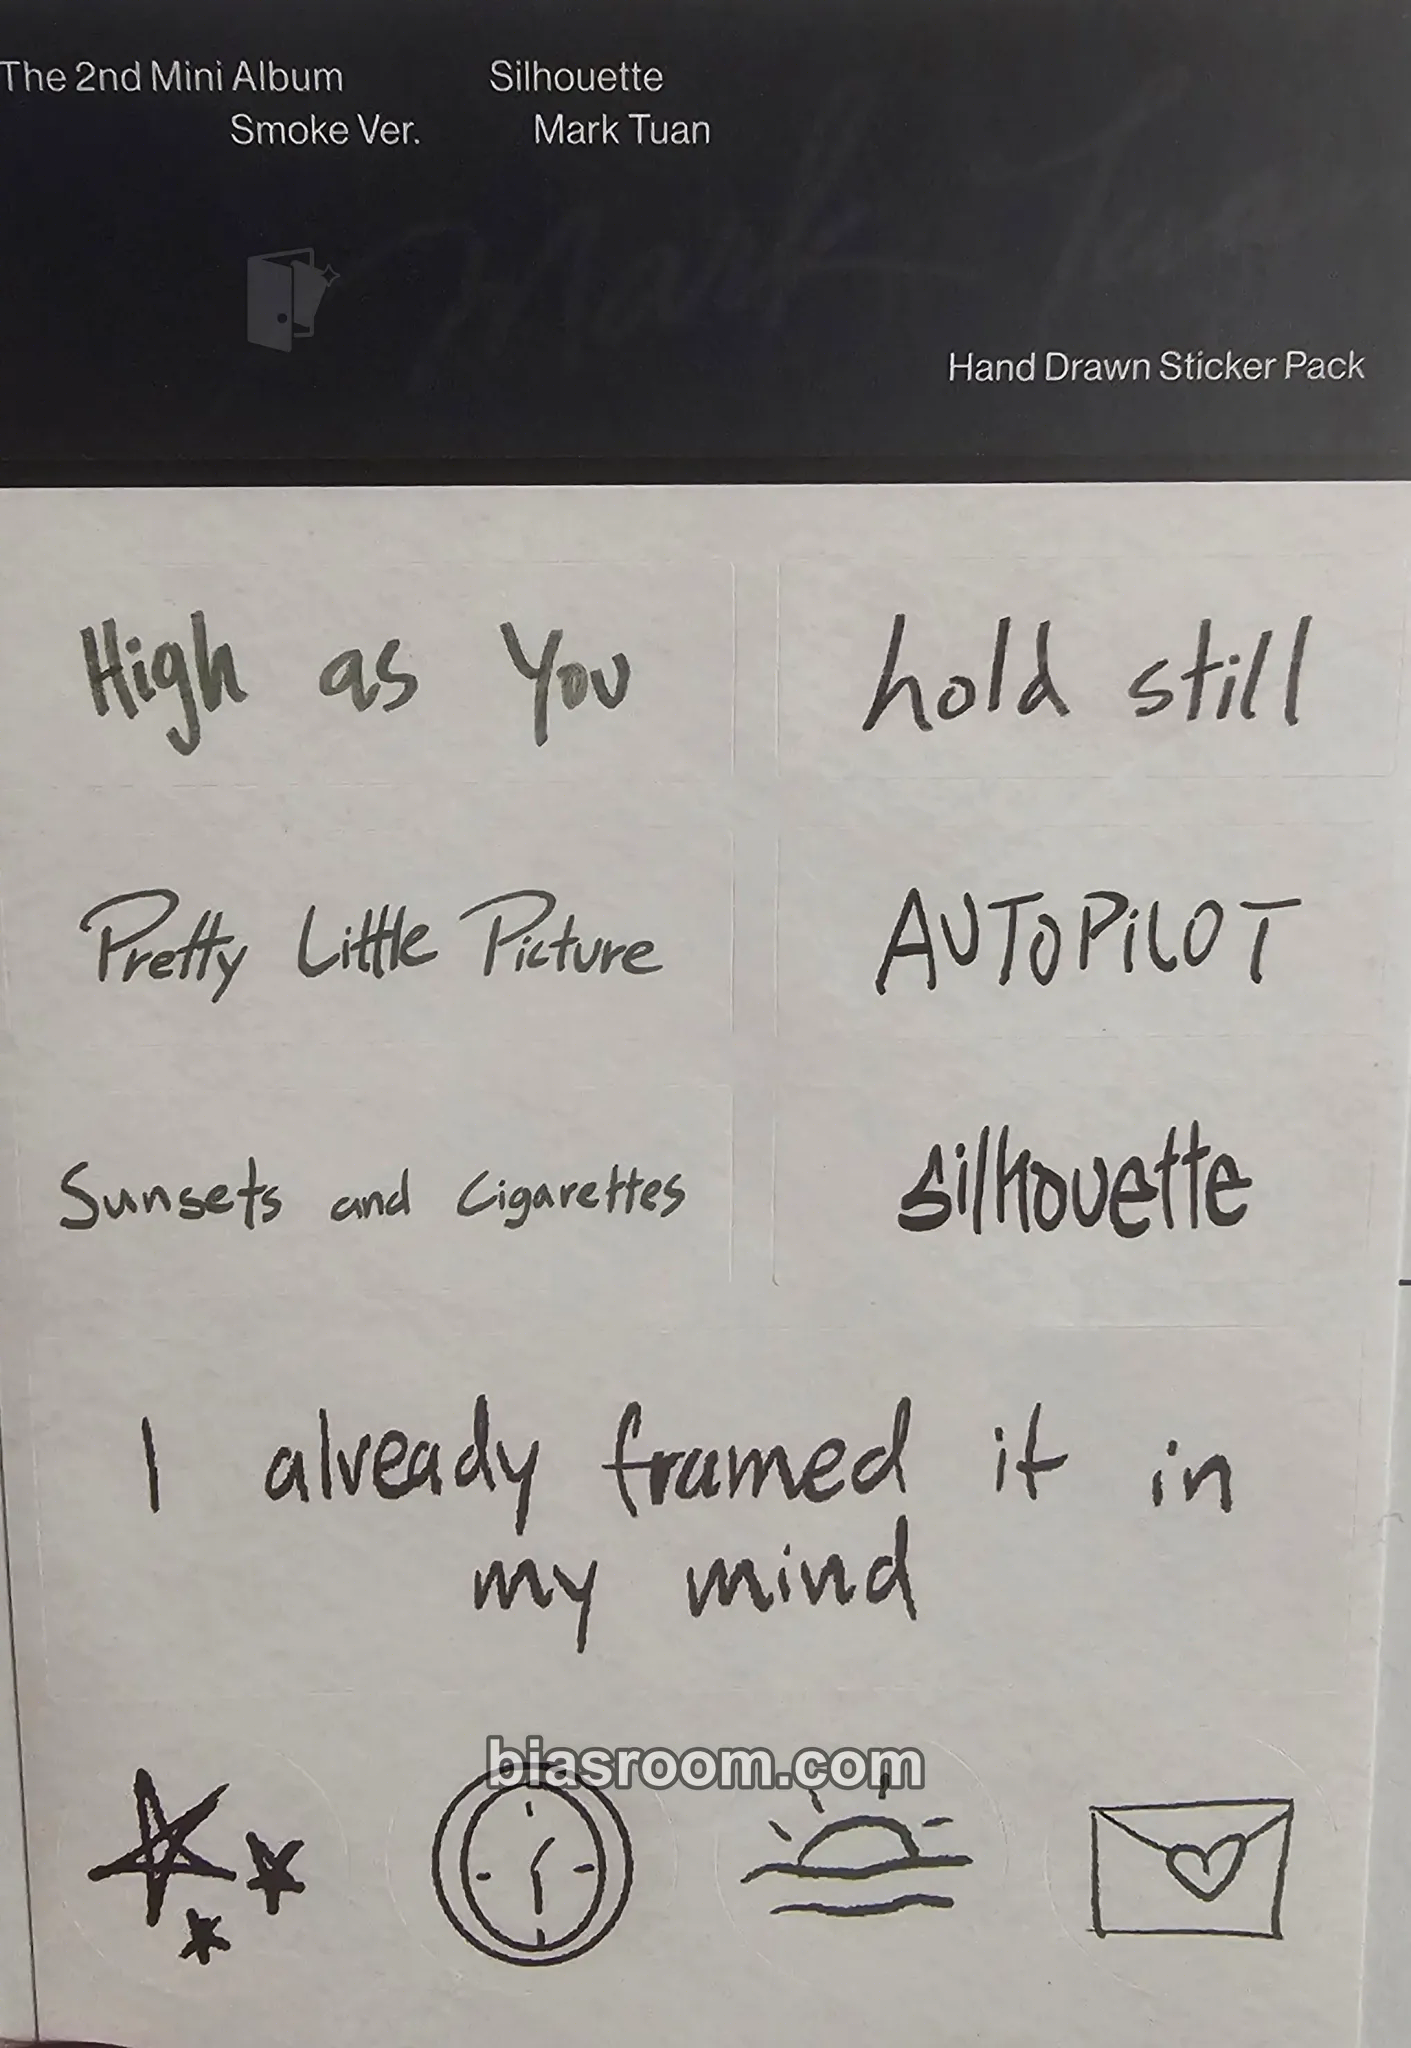 The 2nd Mini Album Silhouette
Smoke Ver. Mark Tuan
Mark Tuan
Hand Drawn Sticker Pack
High as You
hold still
Pretty Little Picture
AUTOPiLOT
Sunsets and Cigarettes
silhouette
I already framed it in
my mind
biasroom.com